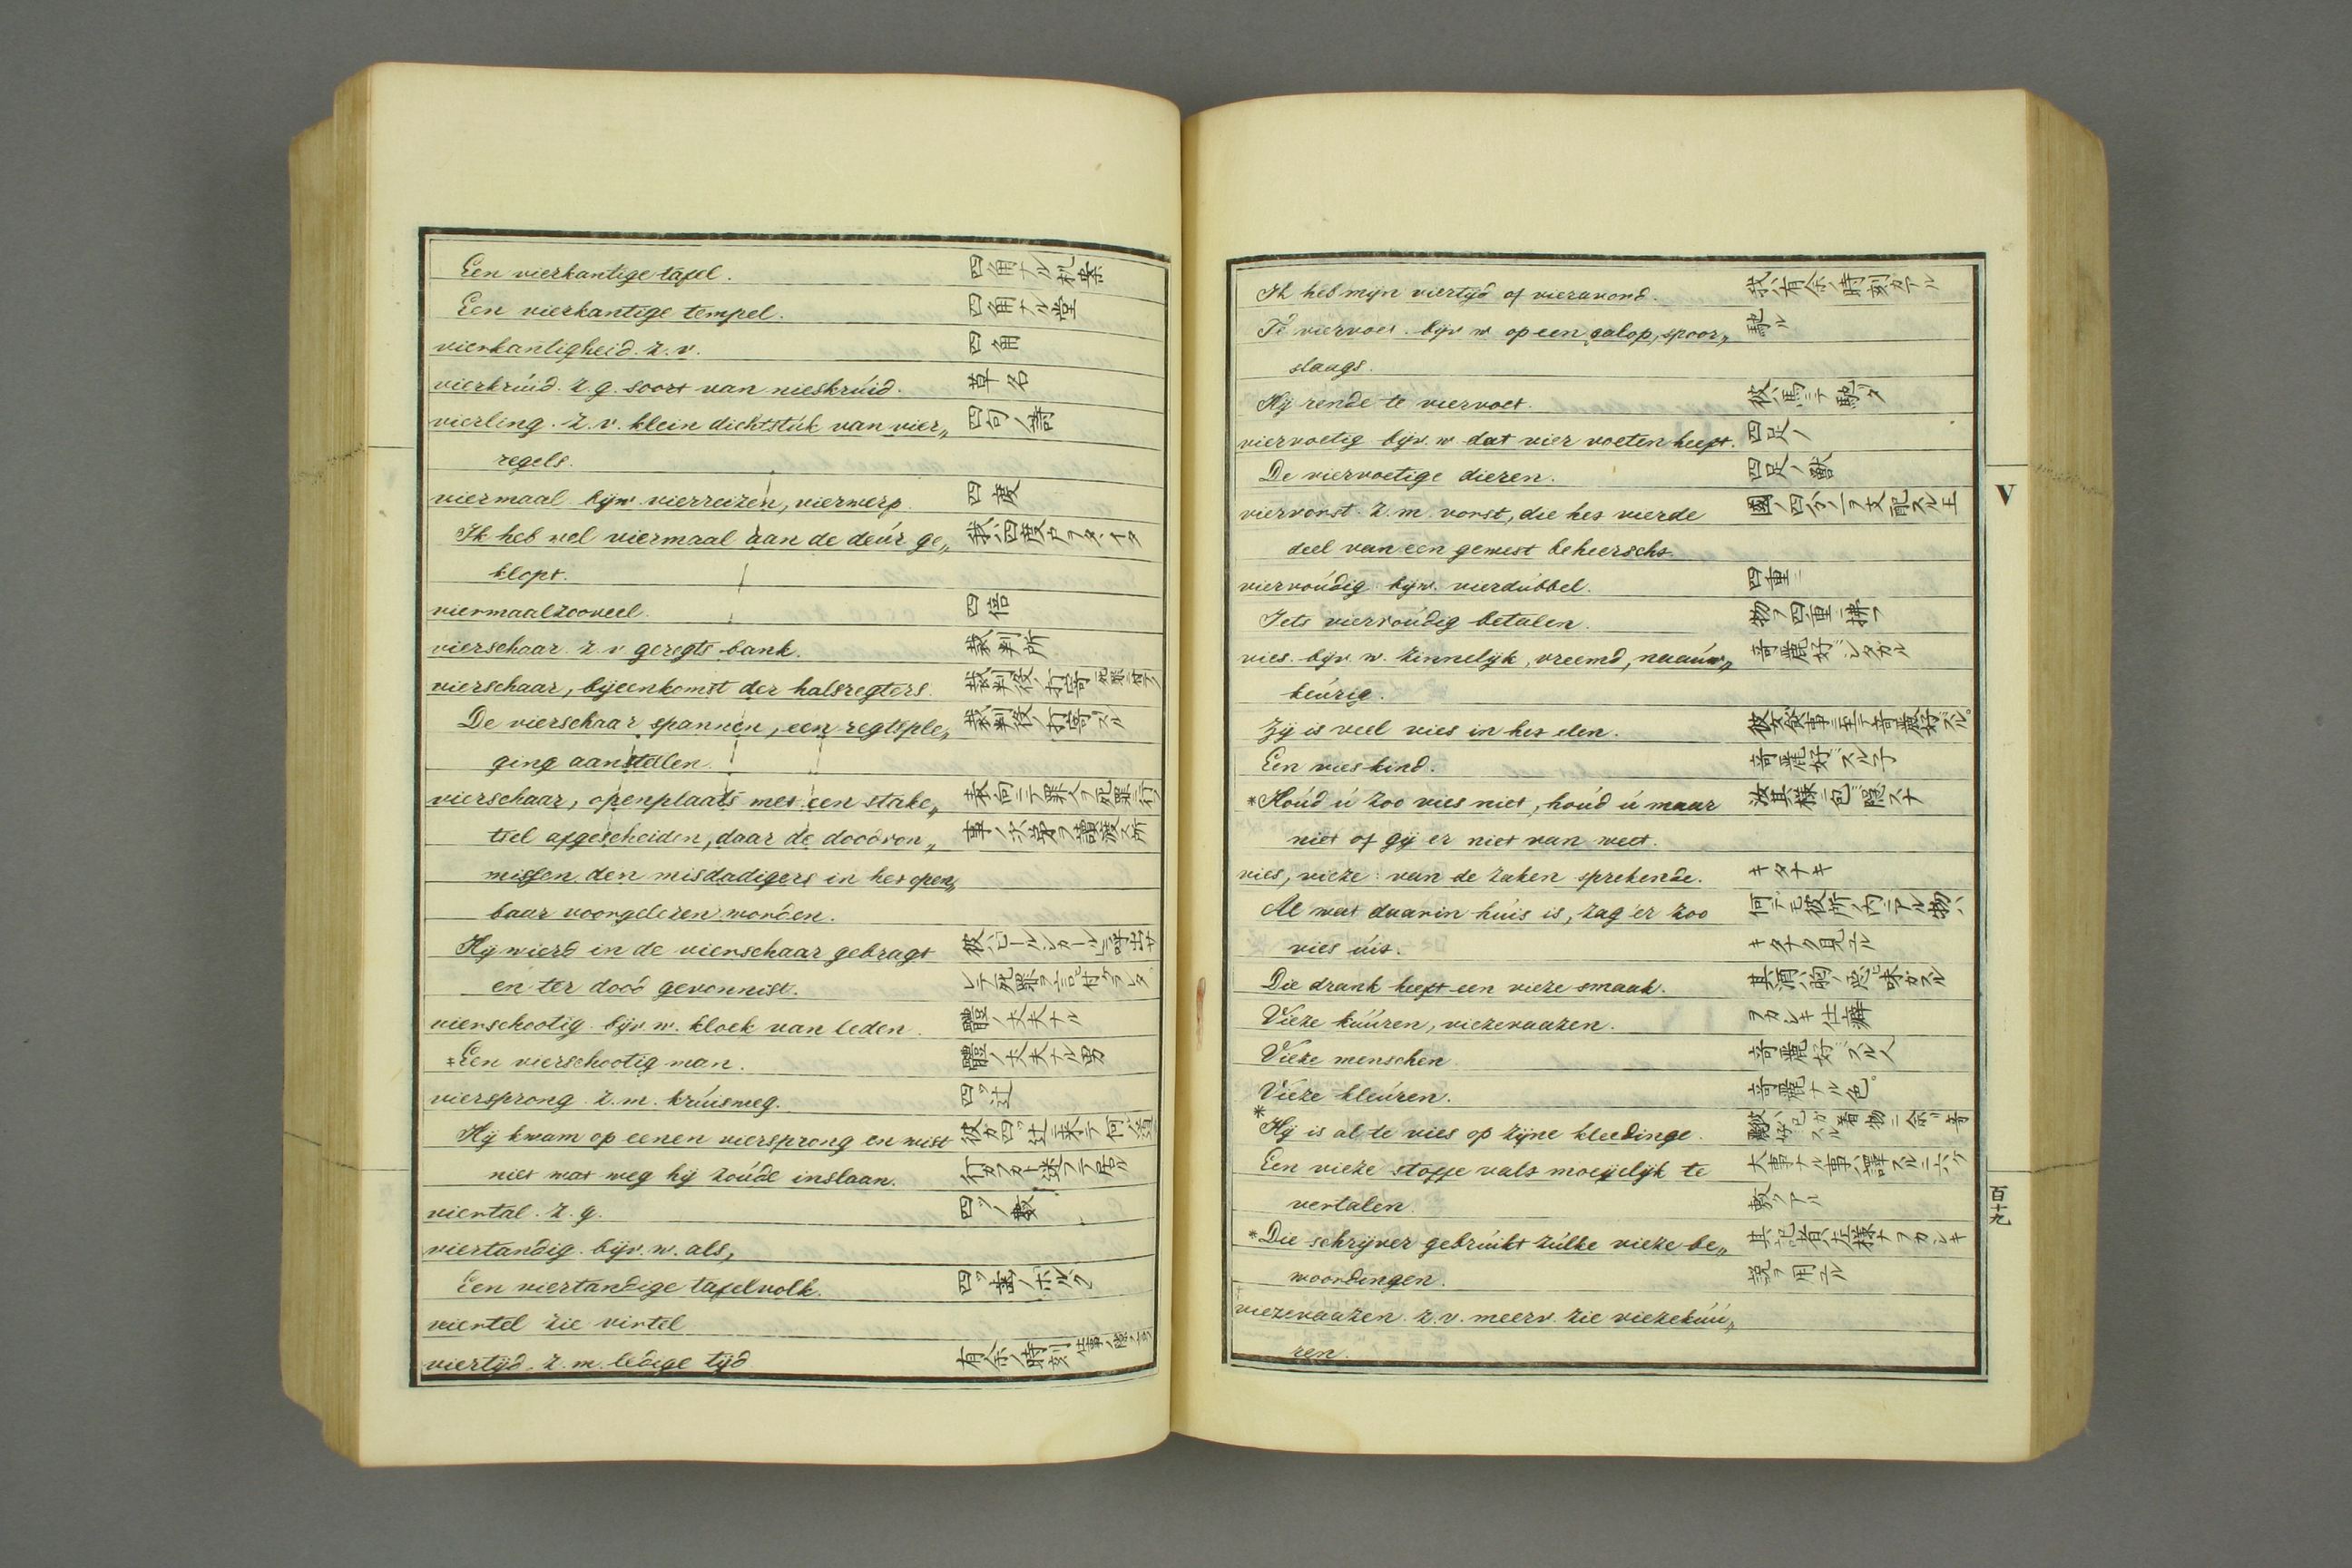 Een vierkantige tafel. 四角ナル机案
Een vierkantige tempel. 四角ナル堂
vierkantigheid. z. v. 四角
vierkrúid. z. g. soort van nieskrúid. 草名
vierling. z. v. klein dichtstúk van vier„ 四句ノ詩
regels.
viermaal bijw. vierreizen, vierwerp. 四度
Ik heb wel viermaal aan de deúr ge„ 我ハ四度戸ヲタヽイタ
klopt.
viermaalzooveel. 四倍
vierschaar. z. v. geregts bank. 裁判所
vierschaar, bijeenkomst der halsregters. 裁判役ノ打寄
De vierschaar spannen, een regtsple„ 裁判役ノ打寄リスル
ging aanstellen.
vierschaar, openplaats met een stake„ 表向ニテ罪人ヲ死罪ニ行ノ
tsel afgescheiden, daar de doodvon„ 事ノ次第ヲ讀渡ス所
nissen den misdadigers in het open„
baar voorgelezen worden.
Hij wierd in de vierschaar gebragt 彼ハビールシカールニ呼出サ
en ter dood gevonnist. レテ死罪ヲ言付ケラレタ
vierschootig. bijv. w. kloek van leden. 體ノ丈夫ナル
*Een vierschootig man. 體ノ丈夫ナル男
viersprong. z. m. krúisweg. 四ツ辻
Hij kwam op eenen viersprong en wist 彼ガ四ツ辻ニ来テ何ノ道
niet wat weg hij zoúde inslaan. 行カフカト迷フテ居ル
viertal. z. g. 四ツノ數
viertandig. bijv. w. als,
Een viertandige tafelvolk. 四ツ歯ノホルク
viertel zie virtel
viertijd. z. m. ledige tijd 有余ノ時刻
Ik heb mijn viertijd of vieravond. 我ハ有余ノ時刻カアル
Te viervoet. bijv. w. op een galop, spoor„ 馳ル
slaags.
Hij rende te viervoet. 彼ハ馬ニテ馳リタ
viervoetig bijv. w. dat vier voeten heeft. 四足ノ
De viervoetige dieren. 四足ノ獣
viervorst. z. m. vorst, die het vierde 國ノ四分一ヲ支配スル王
deel van een gewest beheerscht.
viervoúdig bijw. vierdúbbel. 四重ニ
Iets viervoúdig betalen. 物ヲ四重ニ拂フ
vies. bijv. w. zinnelijk, vreemd, naaúw„ 奇麗好シタガル
keúrig.
Zij is veel vies in het eten. 彼女飲事ニ至テ奇麗好スル。
Een vies kind. 奇麗好スル子
*Hoúd ú zoo vies niet, hoúd ú maar 汝其様ニ包ミ隠スナ
niet of gij er niet van weet.
vies, vieze: van de zaken sprekende. キタナキ
Al wat daar in húis is, zag er zoo 何デモ彼所ノ内ニアル物ハ
vies úit. キタナク見エル
Die drank heeft een vieze smaak. 其酒ハ胸ノ悪ヒ味ガスル
Vieze kúúren, viezevaazen. ヲカシキ仕癖
Vieze menschen. 奇麗好スル人
Vieze kleúren. 奇麗ナル色。
*Hij is al te vies op zijne kleedinge. 彼ハ己ガ着物ニ余リ奇麗好スル
Een vieze stoffe valt moeijelijk te 大事ナル事ハ譯スルニ六ケ
vertalen. 敷クアル
*Die schrijver gebrúikt zúlke vieze be„ 其記者ハ左様ナヲカシキ
woordingen. 説ヲ用ユル
viezevaazen. z. v. meerv. zie viezekúú„
ren.
V
百十九